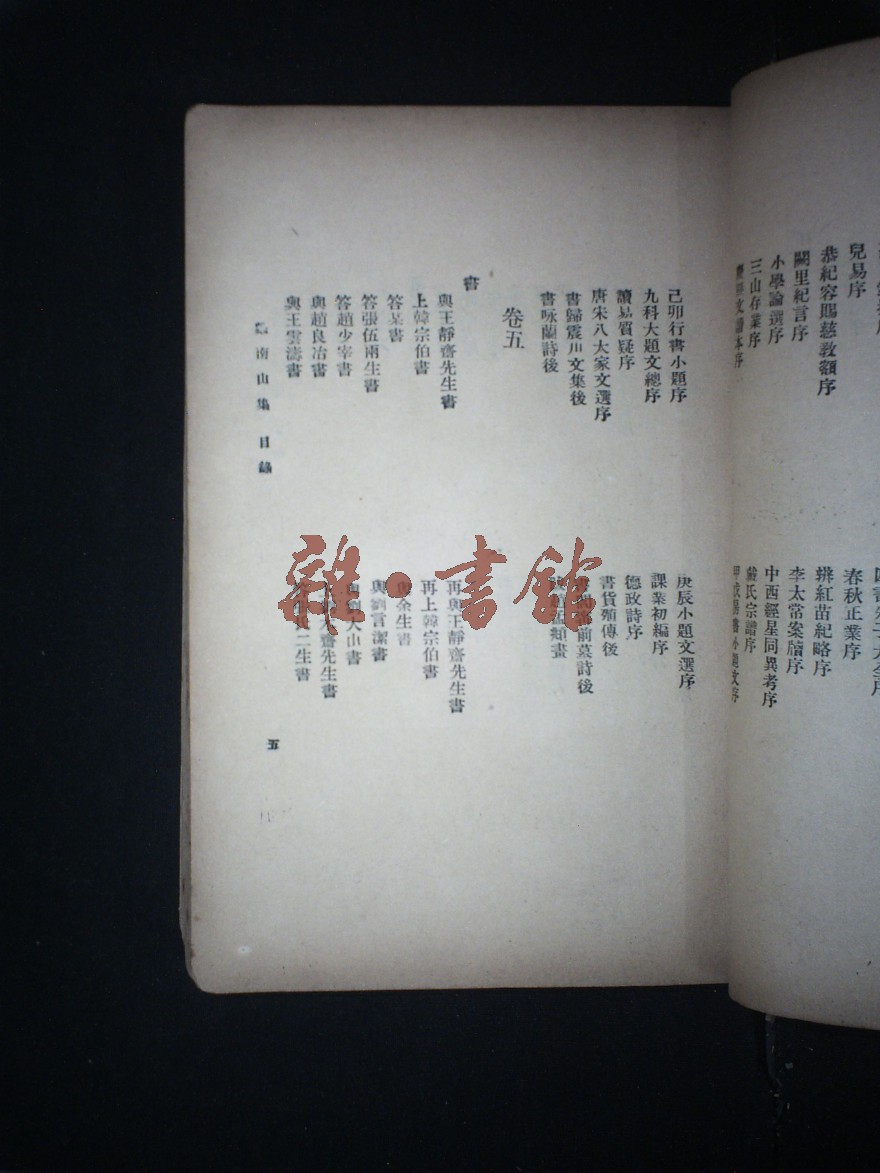 兒易序
恭紀容賜慈教額序
闕里紀言序
小學論選序
三山存業序
春秋正業序
辨紅苗紀略序
李太常案牘序
中西經星同異考序
戴氏宗譜序
己卯行書小題序
九科大題文總序
讀易質疑序
唐宋八大家文選序
書歸震川文集後
書咏蘭詩後
庚辰小題文選序
課業初編序
德政詩序
書貨殖傳後
卷五
書
與王靜齋先生書
上韓宗伯書
答某書
答張伍兩生書
答趙少宰書
與趙良冶書
與王雲濤書
再與王靜齋先生書
再上韓宗伯書
與余生書
南山集 目錄
五
雜·書館